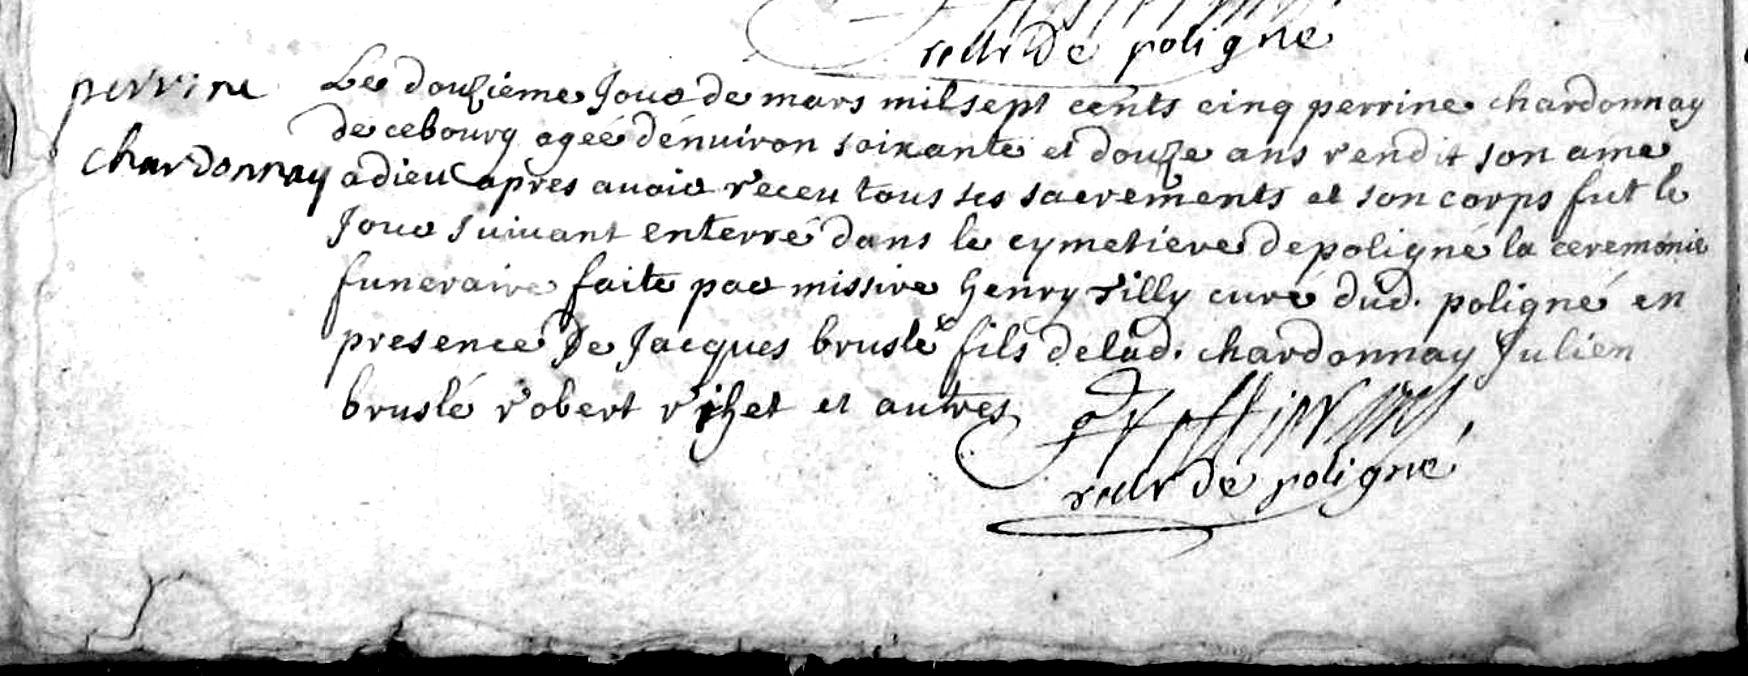 rectr de poligné
perrine
chardonnay
Le douzieme Jour de mars mil sept cents cinq perrine chardonnay
de ce bourg ageé dénuiron soixante et douze ans rendit son ame
a dieu apres auoir receu tous ses sacrements et son corps fut le
Jour suiuant enterré dans le cymetiere de poligné la ceremonie
funeraire faite par missire henry tilly curé dud. poligné en
presence de Jacques bruslé fils de lad. chardonnay Julien
bruslé robert richet et autres
rectr de poligné